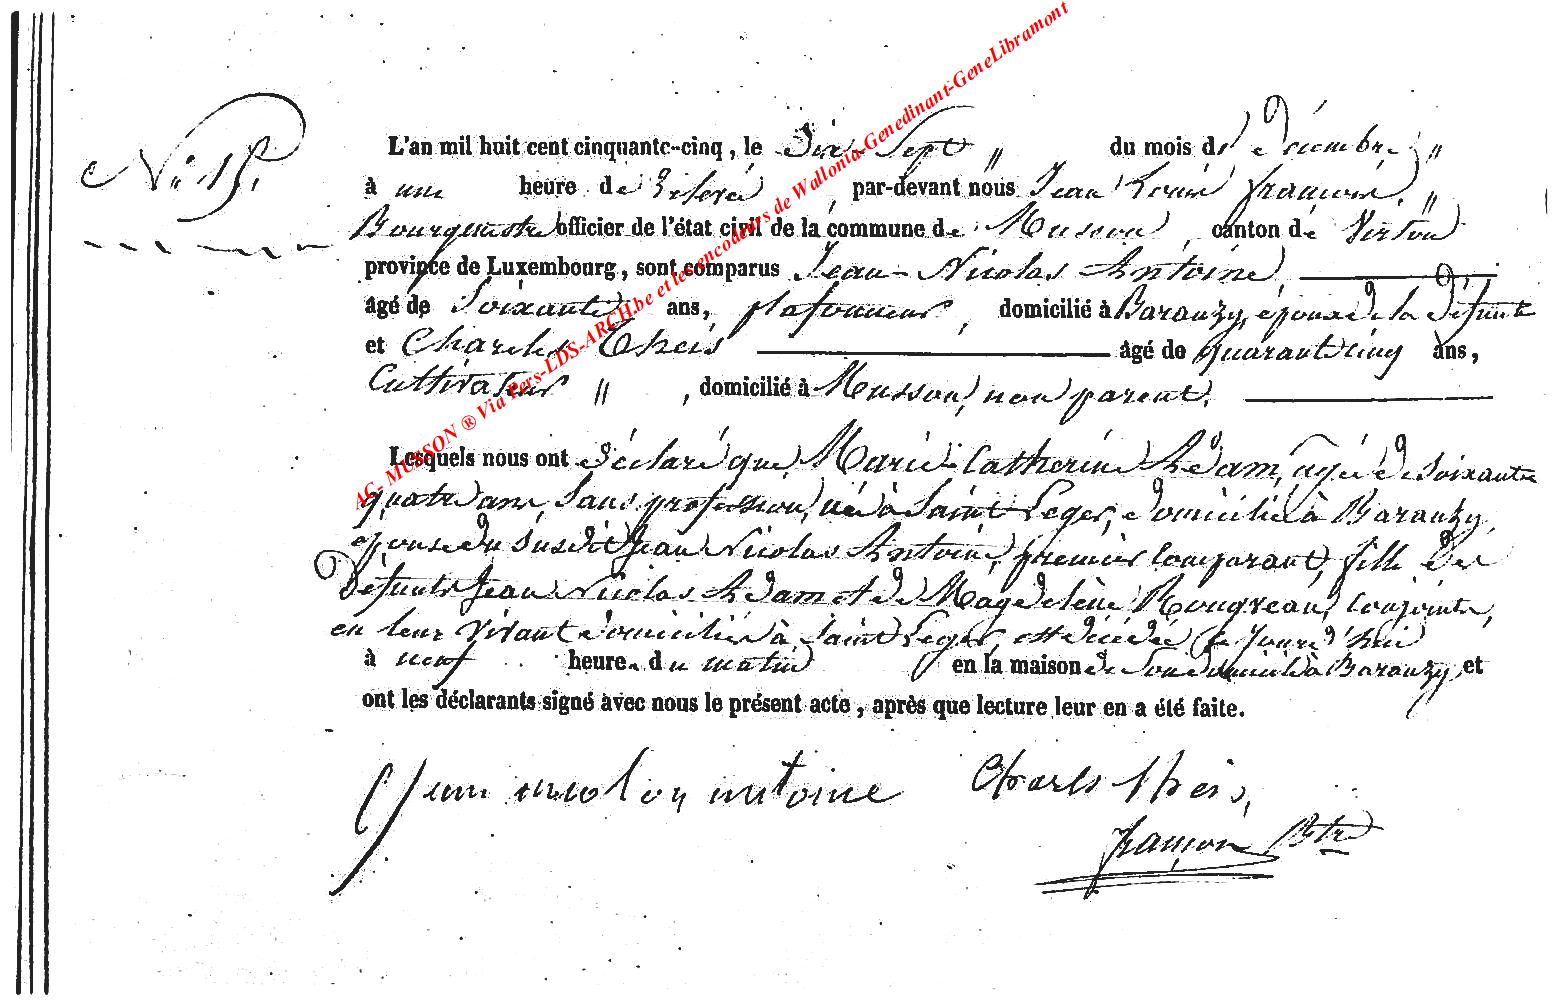 N.° 15.
L'an mil huit cent cinquante-cinq, le Dix-Sept " du mois de Décembre "
à une heure de relevé, par-devant nous Jean Louis François, "
Bourgmestre officier de l'état civil de la commune de Musson, canton de Virton
province de Luxembourg, sont comparus Jean-Nicolas Antoine,
âgé de Soixante ans, plafonneur, domicilié à Baranzy, époux de la Défunte
et Charles Theis âgé de quarante cinq ans,
Cultivateur ", domicilié à Musson, non parent.
Lesquels nous ont déclaré que Marie-Catherine Adam, agée de soixante
quatre ans, Sans profession, née à Saint Leger, domiciliée à Baranzy,
épouse du Susdit Jean Nicolas Antoine, premier Comparant, fille des
Défunts Jean Nicolas Adam et de Magdelène Rougreau, Conjoints,
en leur vivant domiciliés à Saint Leger, est décédée ce Jourd'hui
à neuf heure du matin en la maison de Son domicile à Baranzy, et
ont les déclarants signé avec nous le présent acte, après que lecture leur en a été faite.
Jean nicolas antoine Charles theis,
françois Btre
AC- MUSSON ® Via Pers-LDS-ARCH.be et les encodeurs de Wallonia-Genedinant-GeneLibramont